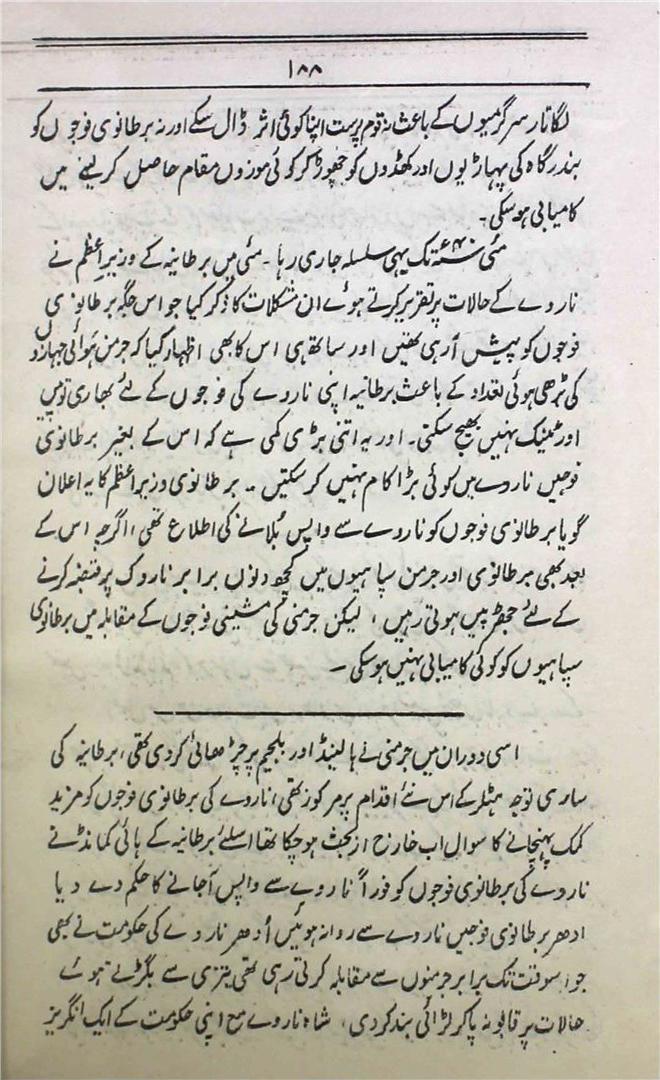 ۱۸۸
لگاتار سرگرمیوں کے باعث نہ قوم پرست اپنا کوئی اثر ڈال سکے اور نہ برطانوی فوجوں کو
بندرگاہ کی پہاڑیوں اور کھڈوں کو چھوڑ کر کوئی موزوں مقام حاصل کرلینے میں
کامیابی ہوسکی۔
مئی سنہ ۴۰ء تک یہی سلسلہ جاری رہا۔ مئی میں برطانیہ کے وزیراعظم نے
ناروے کے حالات پر تقریر کرتے ہوئے ان مشکلات کا ذکر کیا جو اس جگہ برطانوی
فوجوں کو پیش آرہی تھیں اور ساتھ ہی اس کا بھی اظہار کیا کہ جرمن ہوائی جہازوں
کی بڑھی ہوئی تعداد کے باعث برطانیہ اپنی ناروے کی فوجوں کے لئے بھاری توپیں
اور ٹینک نہیں بھیج سکتی۔ اور یہ اتنی بڑی کمی ہے کہ اس کے بغیر برطانوی
فوجیں ناروے میں کوئی بڑا کام نہیں کرسکتیں ۔۔ برطانوی وزیراعظم کا یہ اعلان
گویا برطانوی فوجوں کو ناروے سے واپس بُلانے کی اطلاع تھی، اگرچہ اس کے
بعد بھی برطانوی اور جرمن سپاہیوں میں کچھ دنوں برابر ناروک پر قبضہ کرنے
کے لئے جھڑپیں ہوتی رہیں، لیکن جرمنی کی مشینی فوجوں کے مقابلہ میں برطانوی
سپاہیوں کو کوئی کامیابی نہیں ہوسکی ۔
اسی دوران میں جرمنی نے ہالینڈ اور بلجیم پر چڑھائی کردی تھی، برطانیہ کی
ساری توجہ ہٹلر کے اس نئے اقدام پر مرکوز تھی، ناروے کی برطانوی فوجوں کو مزید
کمک پہنچانے کا سوال اب خارج از بحث ہوچکا تھا اسلئے برطانیہ کے ہائی کمانڈ نے
ناروے کی برطانوی فوجوں کو فوراً ناروے سے واپس آجانے کا حکم دے دیا
ادھر برطانوی فوجیں ناروے سے روانہ ہوئیں اُدھر ناروے کی حکومت نے بھی
جو اسوقت تک برابر جرمنوں سے مقابلہ کرتی رہی تھی تیزی سے بگڑتے ہوئے
حالات پر قابو نہ پاکر لڑائی بند کردی، شاہ ناروے مع اپنی حکومت کے ایک انگریز